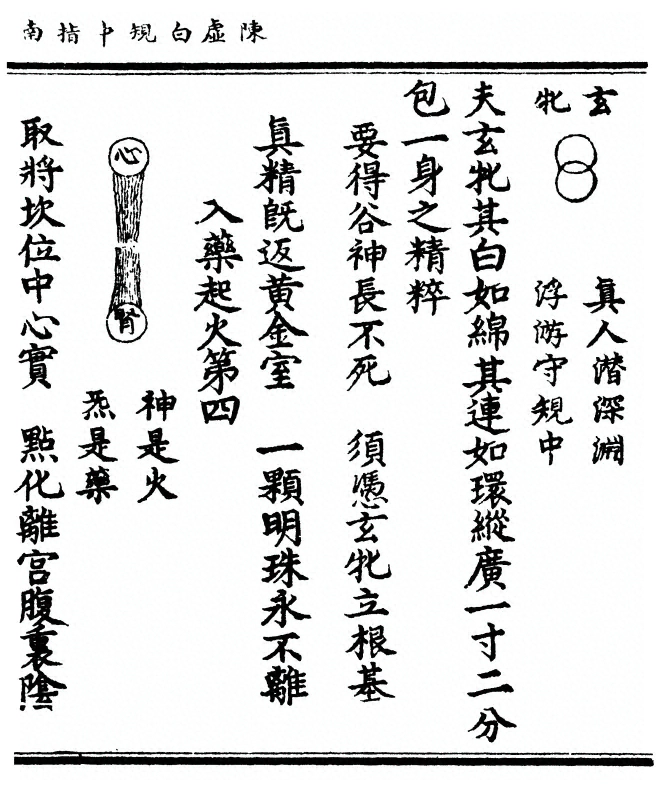 陳虛白規中指南
玄牝
眞人潜深淵
浮游守規中
夫玄牝其白如綿其連如環縱廣一寸二分
包一身之精粹
要得谷神長不死 須憑玄牝立根基
眞精旣返黃金室 一顆明珠永不離
入藥起火第四
神是火
炁是藥
心
腎
取將坎位中心實 點化離宮腹裏陰